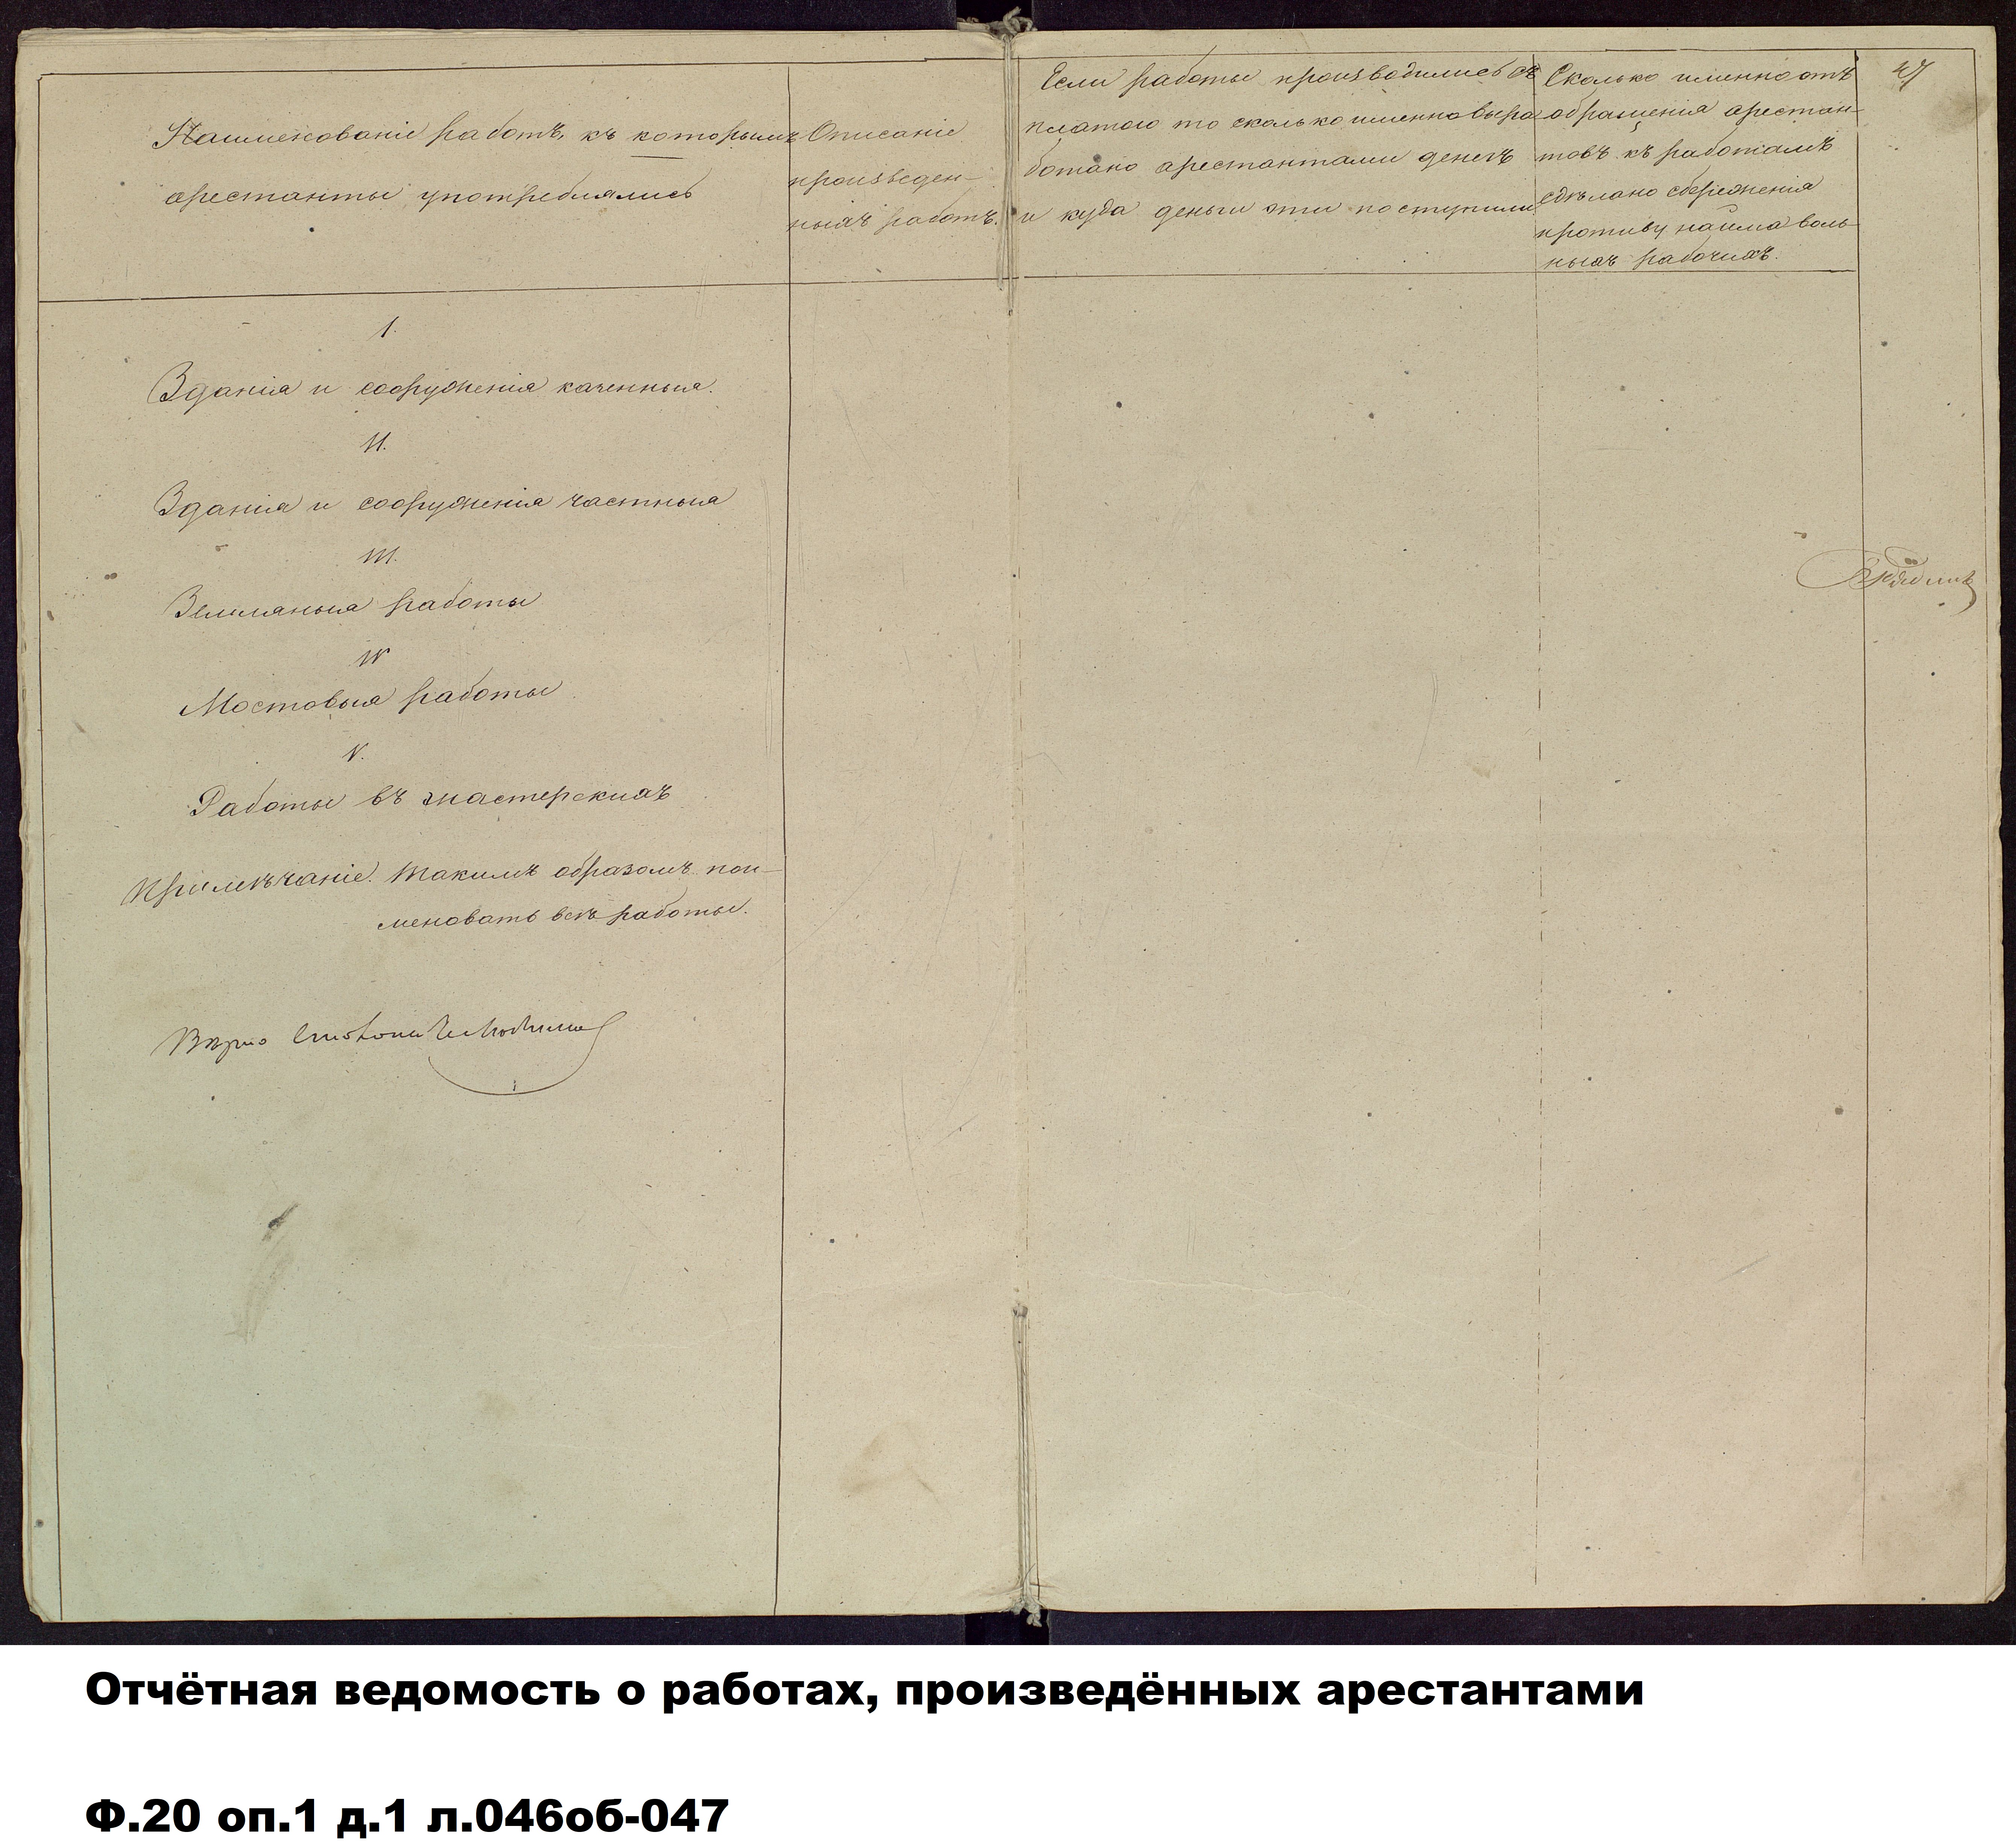 Наименованіе работъ, къ которымъ
арестанты употреблялись
Описаніе
произведен-
ныхъ работъ.
Если работы производились съ
платою то сколько именно выра
ботано арестантами денегъ
и куда деньги эти поступили
Сколько именно отъ
обращенія арестан-
товъ къ работамъ
сдѣлано сбереженія
противу найма воль-
ныхъ рабочихъ.
47
I.
Зданія и сооруженія казенныя.
II.
Зданія и сооруженія частныя
III.
Земляныя работы
IV
Мостовыя работы
V.
Работы въ мастерскихъ
Примѣчаніе. Такимъ образомъ пои-
меновать всѣ работы.
Вѣрно
Отчётная ведомость о работах, произведённых арестантами
Ф.20 оп.1 д.1 л.046об-047